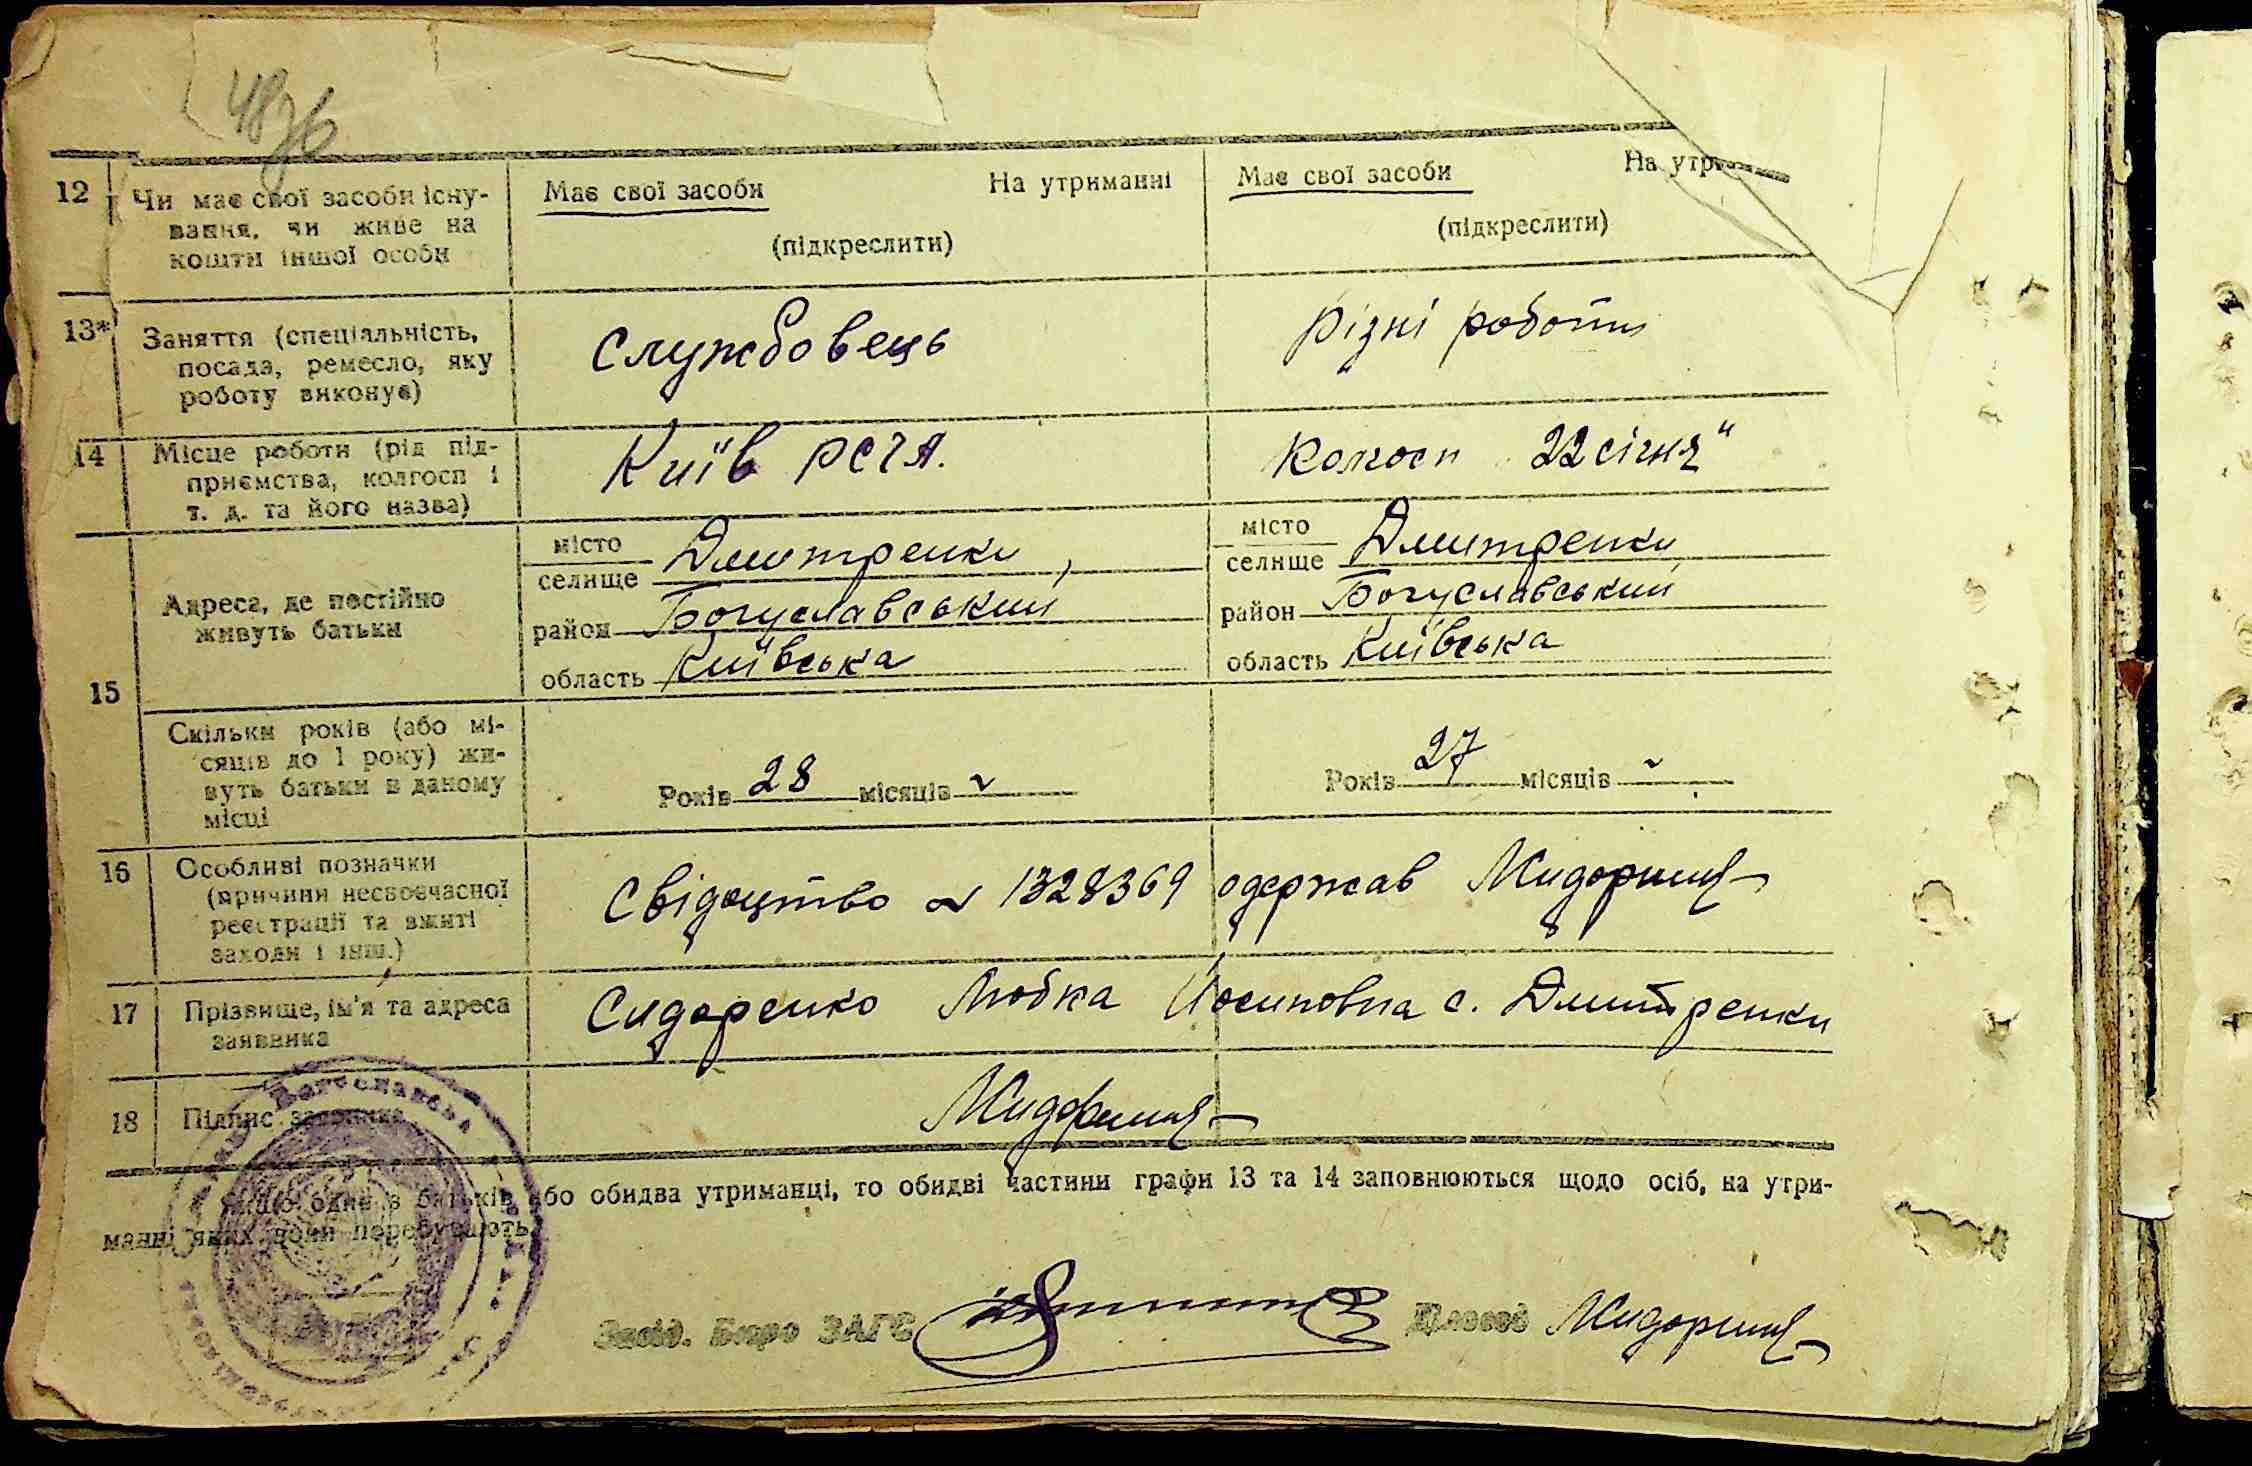 48зб
12
Чи має свої засоби існу-
вання, чи живе на
кошти іншої особи
Має свої засоби На утриманні
(підкреслити)
Має свої засоби На утри
(підкреслити)
13*
Заняття (спеціальність,
посада, ремесло, яку
роботу виконує)
Службовець
Різні роботи
14
Місце роботи (рід під-
приємства, колгосп і
т. д. та його назва)
Київ РСЧА.
Колгосп "22 січня"
15
Адреса, де постійно
живуть батьки
місто
селище Дмитренки,
район Богуславський
область Київська
місто
селище Дмитренки
район Богуславський
область Київська
Скільки років (або мі-
сяців до 1 року) жи-
вуть батьки в даному
місці
Років 28 місяців ~
Років 27 місяців ~
16
Особливі позначки
(причини несвоєчасної
реєстрації та вжиті
заходи і інш.)
Свідоцтво № 1328369 одержав
17
Прізвище, ім'я та адреса
заявника
Сидоренко Любка Йосиповна с. Дмитренки
18
Підпис заявника
Якщо один з батьків або обидва утриманці, то обидві частини графи 13 та 14 заповнюються щодо осіб, на утри-
манні яких вони перебувають
Завід. Бюро ЗАГС Діловод